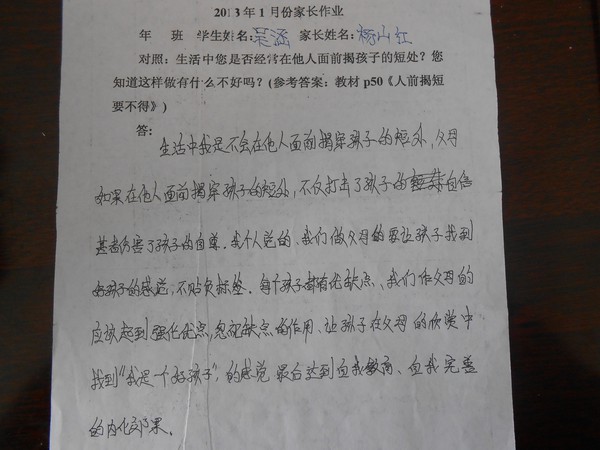 2013年1月份家长作业
年 班 学生姓名:吴涵 家长姓名:杨小红
对照:生活中您是否经常在他人面前揭孩子的短处?您
知道这样做有什么不好吗?(参考答案:教材 p50《人前揭短
要不得》)
答:
生活中我是不会在他人面前揭穿孩子的短处,父母
如果在他人面前揭穿孩子的短处,不仅打击了孩子的自信
甚者伤害了孩子的自尊。我个人觉的、我们做父母的要让孩子找到
好孩子的感觉,不贴负标签。每个孩子都有优缺点、我们作父母的
应该起到强化优点,忽视缺点的作用、让孩子在父母的欣赏中
找到“我是一个好孩子”,的感觉 最后达到自我教育、自我完善
的内化效果。